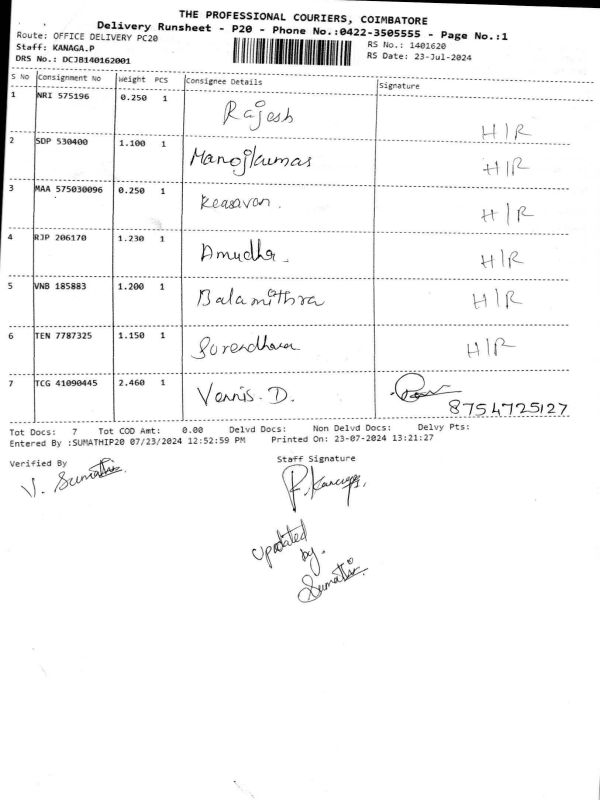 THE PROFESSIONAL COURIERS, COIMBATORE
Delivery Runsheet - P20 - Phone No.:0422-3505555 - Page No.:1
Route: OFFICE DELIVERY PC20 RS No.: 1401620
Staff: KANAGA.P RS Date: 23-Jul-2024
DRS No.: DCJB140162001
S No Consignment No Weight PCS Consignee Details Signature
1 NRI 575196 0.250 1 Rajesh H/R
2 SDP 530400 1.100 1 Manojkumar H/R
3 MAA 575030096 0.250 1 Keasavan. H/R
4 RJP 206170 1.230 1 Amudha. H/R
5 VNB 185883 1.200 1 Balamithra H/R
6 TEN 7787325 1.150 1 H/R
7 TCG 41090445 2.460 1 Vennis. D. 8754725127
Tot Docs: 7 Tot COD Amt: 0.00 Delvd Docs: Non Delvd Docs: Delvy Pts:
Entered By :SUMATHIP20 07/23/2024 12:52:59 PM Printed On: 23-07-2024 13:21:27
Verified By Staff Signature
V. Sumathi.
updated
by.
Sumathi.